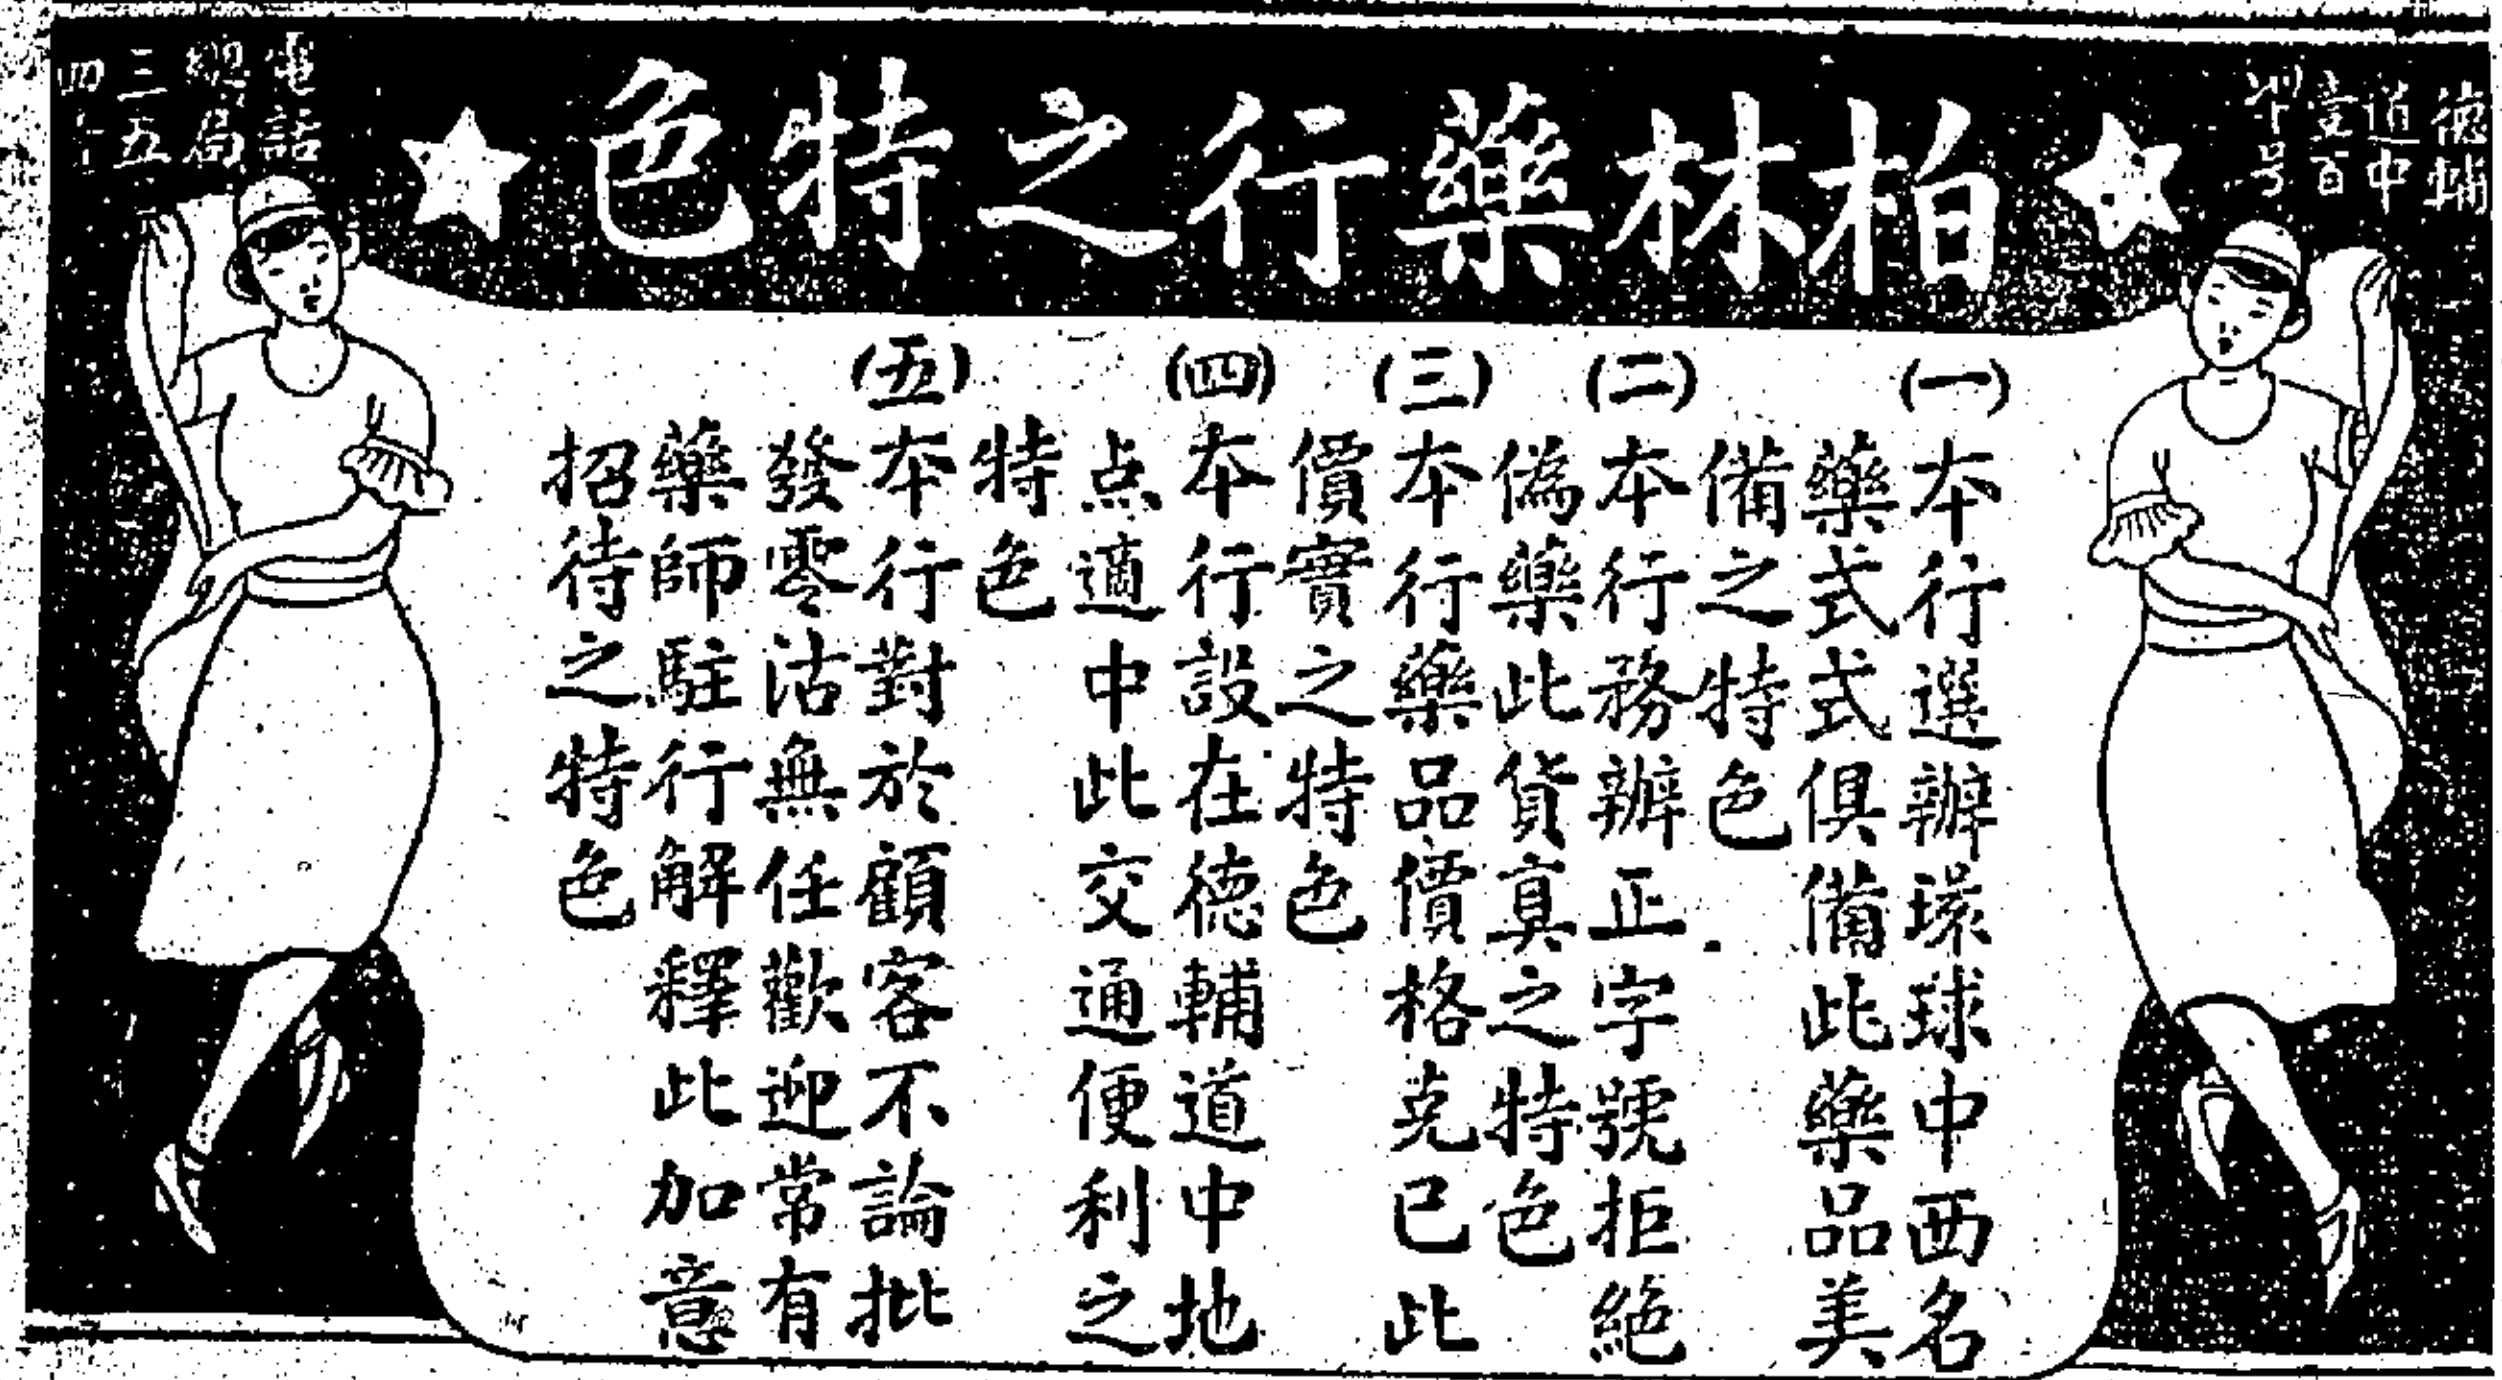 柏林藥行之特色
德輔
道中
壹百
号
電話
總局
三五
四
(一)本行選辦環球中西名
藥式式俱備此藥品美
備之特色
(二)本行務辦正字號拒絕
偽藥此貨真之特色
(三)本行藥品價格克已此
價實之特色
(四)本行設在德輔道中地
点適中此交通便利之
特色
(五)本行對於顧客不論批
發零沽無任歡迎常有
藥師駐行解釋此加意
招待之特色